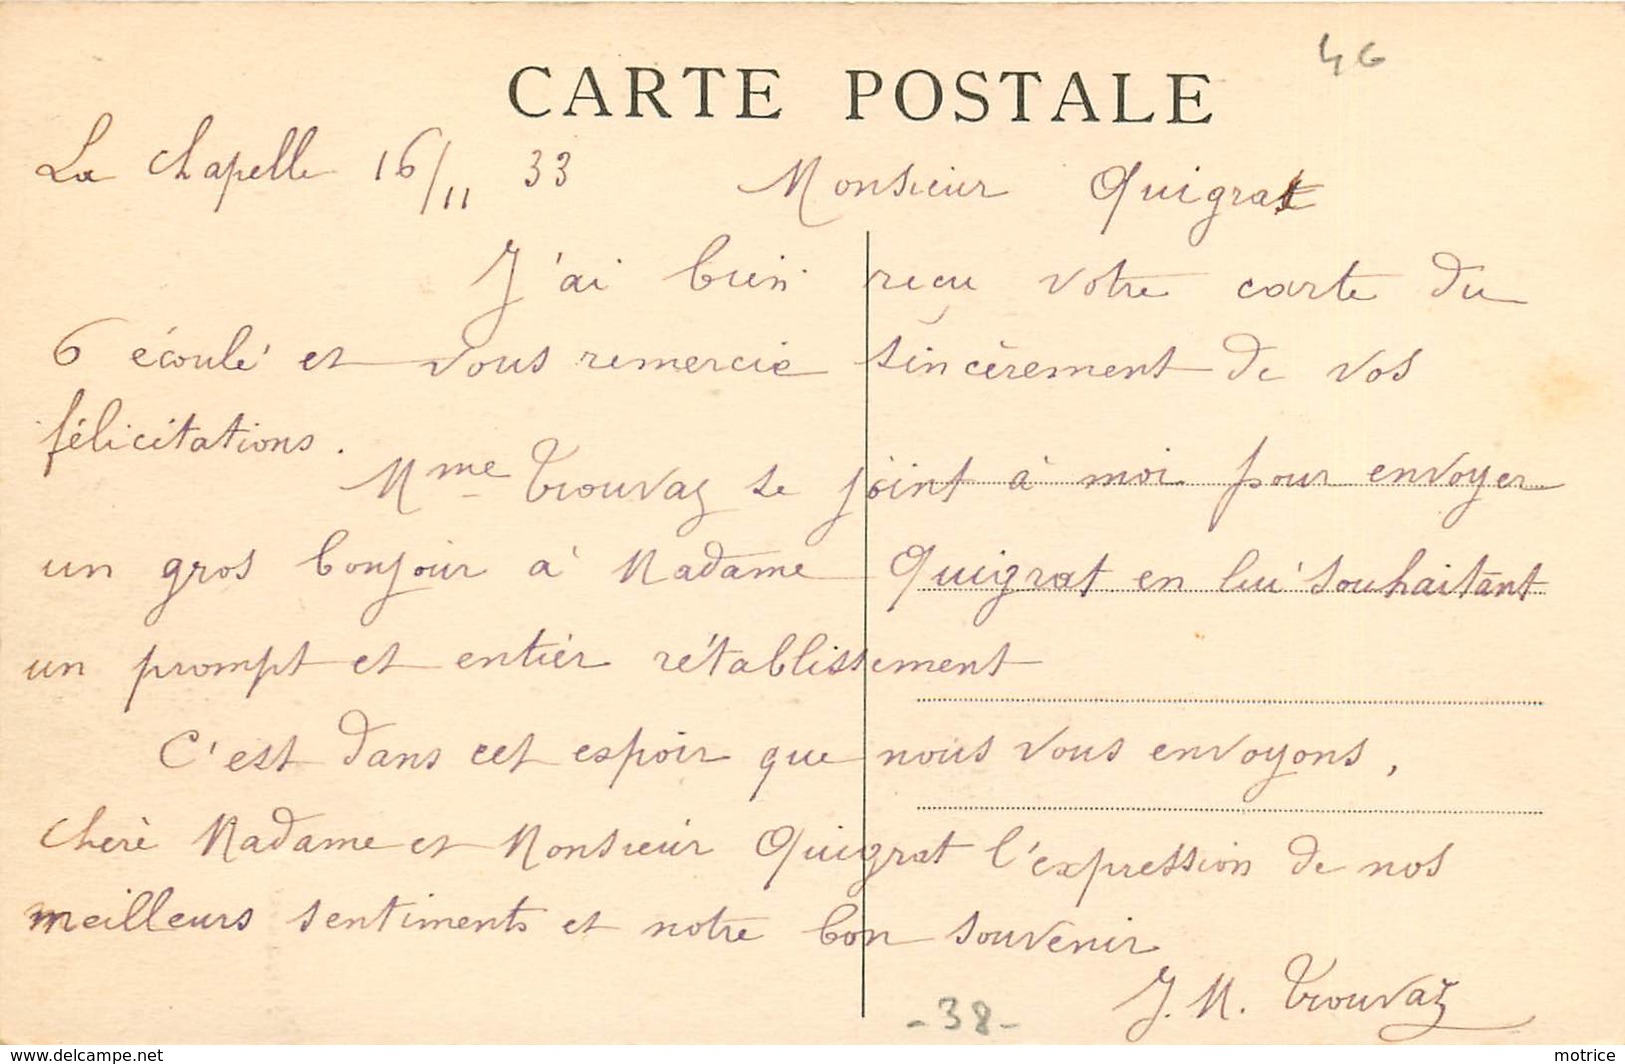 4G
CARTE POSTALE
La Chapelle 16/11 33 Monsieur Quigrat
J'ai bien reçu votre carte du
6 écoulé et vous remercie sincèrement de vos
félicitations.
Mme Trouvaz se joint à moi pour envoyer
un gros bonjour à Madame Quigrat en lui souhaitant
un prompt et entier rétablissement
C'est dans cet espoir que nous vous envoyons,
chère Madame et Monsieur Quigrat l'expression de nos
meilleurs sentiments et notre bon souvenir
J. M. Trouvaz
-38-
www.delcampe.net
motrice